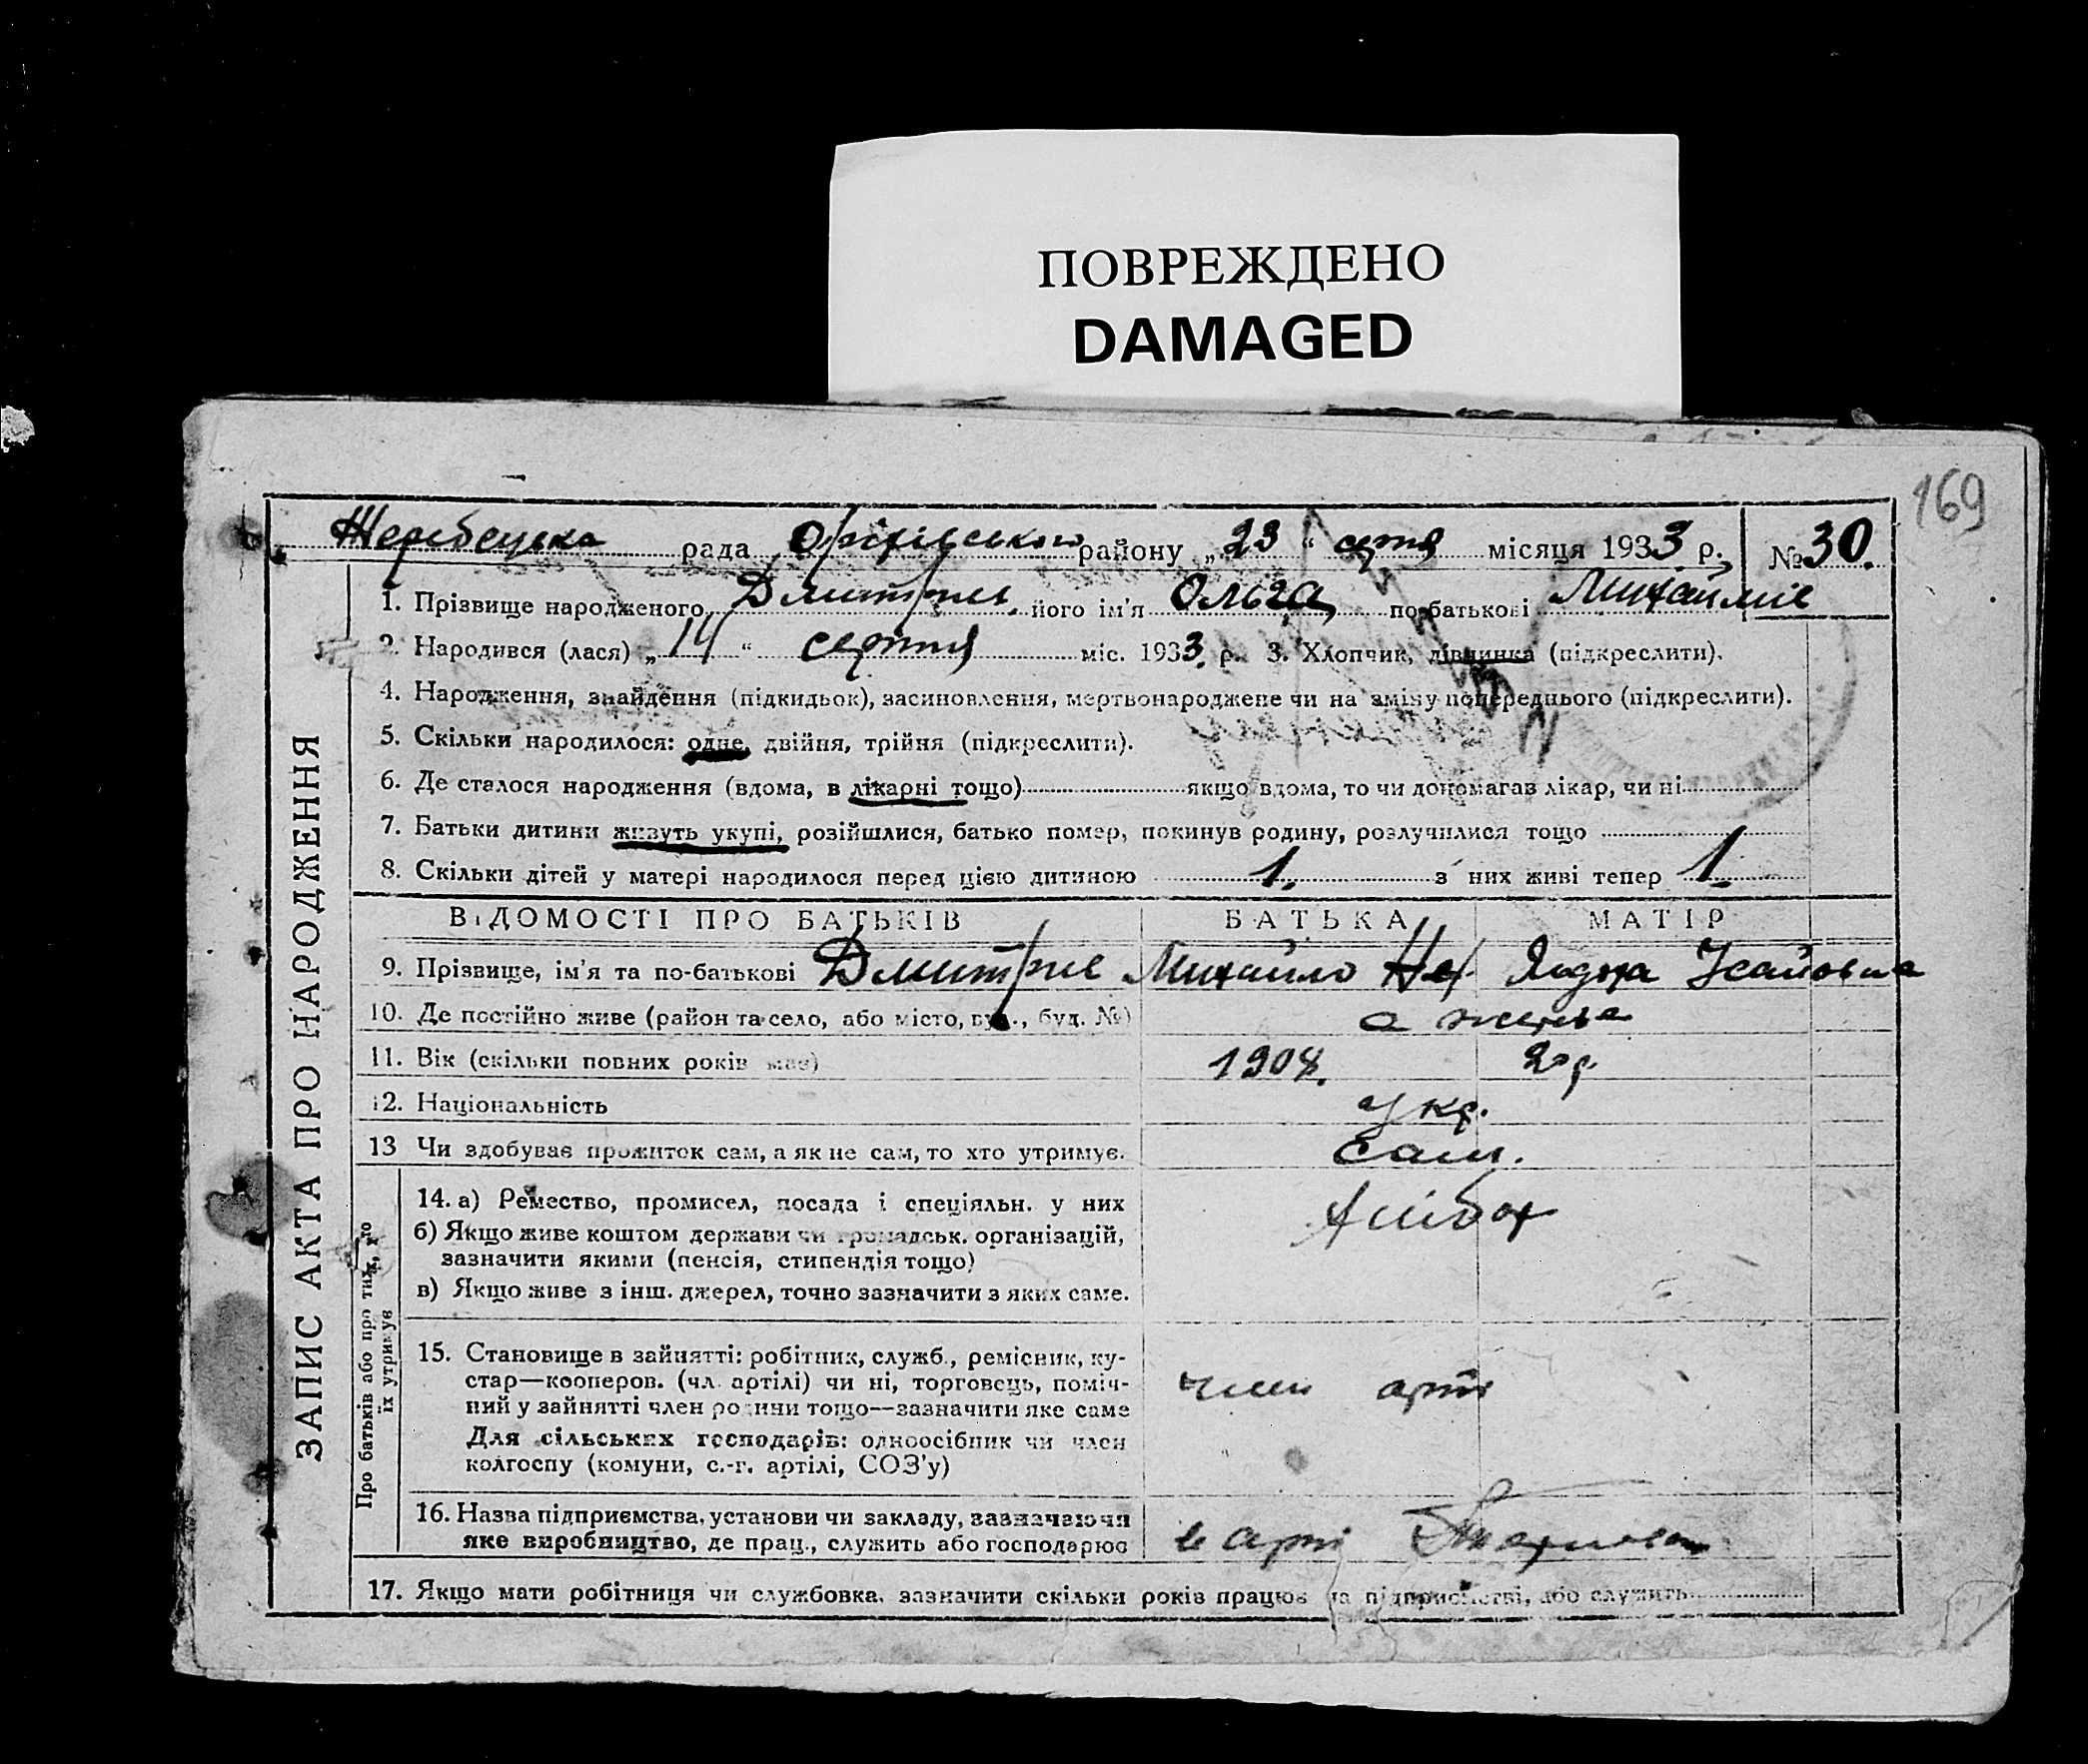 ПОВРЕЖДЕНО
DAMAGED
169
Жеребецька рада Оріхівського району „23“ серпня місяця 1933 р. № 30.
1. Прізвище народженого Дмитрів його ім'я Ольга по-батькові Михайлів
2. Народився (лася) „14“ серпня міс. 1933 р. 3. Хлопчик, дівчинка (підкреслити).
4. Народження, знайдення (підкидьок), засиновлення, мертвонароджене чи на зміну попереднього (підкреслити).
5. Скільки народилося: одне, двійня, трійня (підкреслити).
6. Де сталося народження (вдома, в лікарні тощо) якщо вдома, то чи допомагав лікар, чи ні
7. Батьки дитини живуть укупі, розійшлися, батько помер, покинув родину, розлучилися тощо
8. Скільки дітей у матері народилося перед цією дитиною 1. з них живі тепер 1.
ВІДОМОСТІ ПРО БАТЬКІВ БАТЬКА МАТІР
9. Прізвище, ім'я та по-батькові Дмитрів Михайло
10. Де постійно живе (район та село, або місто, вул., буд. №)
11. Вік (скільки повних років має) 1908.
12. Національність укр.
13 Чи здобуває прожиток сам, а як не сам, то хто утримує. сам.
14. а) Ремество, промисел, посада і спеціяльн. у них хлібор
б) Якщо живе коштом держави чи громадськ. організацій,
зазначити якими (пенсія, стипендія тощо)
в) Якщо живе з інш. джерел, точно зазначити з яких саме.
15. Становище в зайнятті: робітник, служб., ремісник, ку-
стар—кооперов. (чл. артілі) чи ні, торговець, поміч- член арті
ний у зайнятті член родини тощо—зазначити яке саме
Для сільських господарів: одноосібник чи член
колгоспу (комуни, с.-г. артілі, СОЗ'у)
16. Назва підприємства, установи чи закладу, зазначаючи
яке виробництво, де прац., служить або господарює в арті
17. Якщо мати робітниця чи службовка, зазначити скільки років працює на підприємстві, або служить
ЗАПИС АКТА ПРО НАРОДЖЕННЯ
Про батьків або про тих, хто
їх утримує